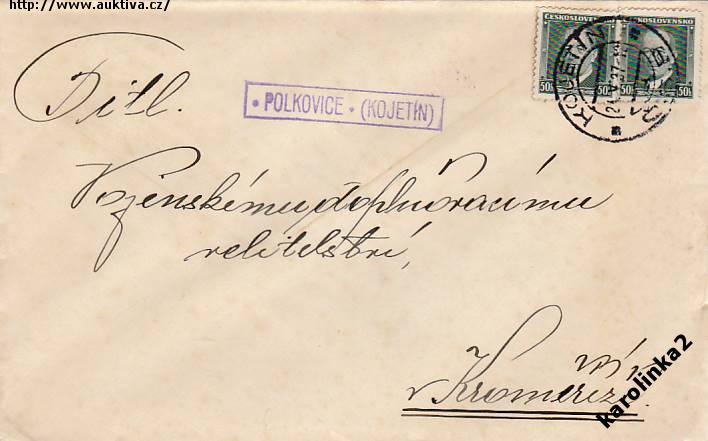 http://www.auktiva.cz/
ČESKOSLOVENSKO ČESKOSLOVENSKO
50h 50h
KOJETÍN
Ditl.
• POLKOVICE • (KOJETÍN)
Vojenskému doplňovacímu
velitelství,
v Kroměříži
karolinka2